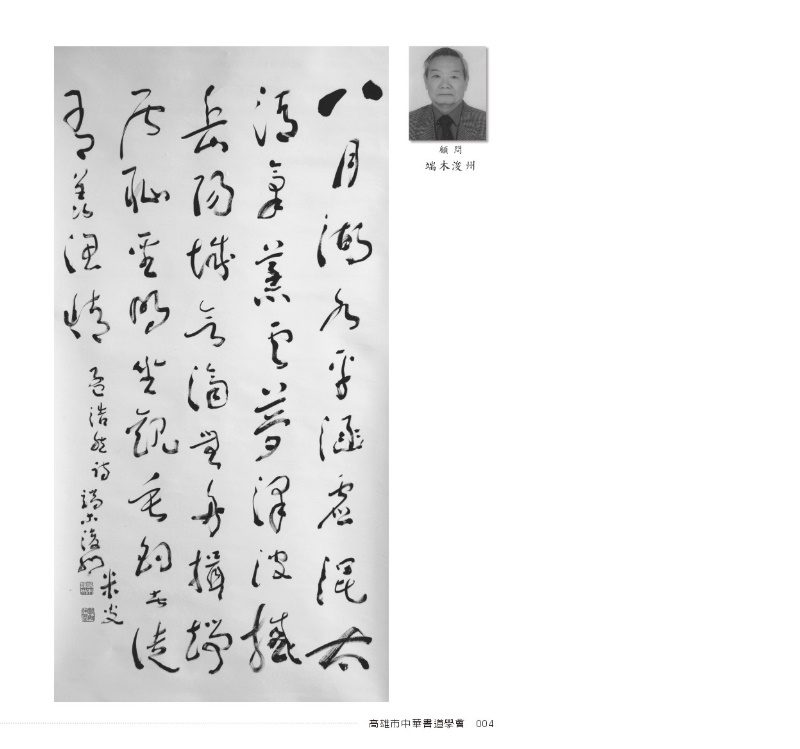 八月湖水平涵虛混太
清氣蒸雲夢澤波撼
岳陽城欲濟無舟楫端
居恥聖明坐觀垂釣者徒
有羨漁情
孟浩然詩 端木浚州
顧問
端木浚州
高雄市中華書道學會 004